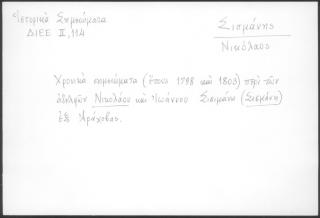 Ἱστορικὰ Σημειώματα
ΔΙΕΕ ΙΙ, 114
Σισμάνης
Νικόλαος
Χρονικὰ σημειώματα (ἔτους 1798 καὶ 1803) περὶ τῶν
ἀδελφῶν Νικολάου καὶ Ἰωάννου Σισμάνη (Σισμάνη)
ἐξ Ἀράχοβας.